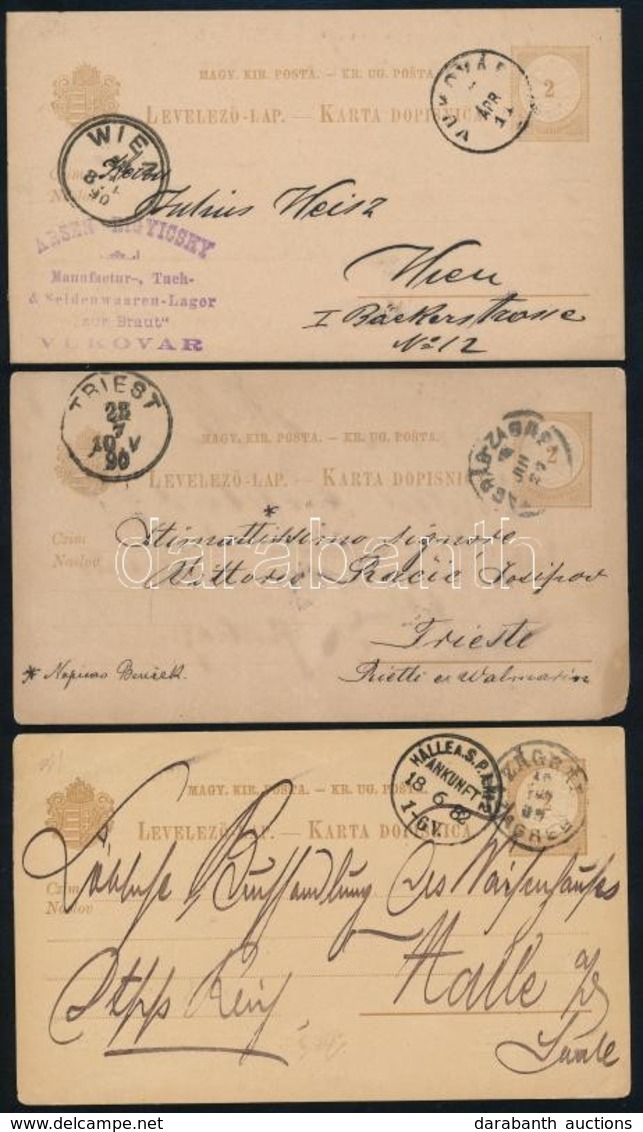 MAGY. KIR. POSTA. — KR. UG. POŠTA.
LEVELEZŐ-LAP. — KARTA DOPISNICA
2
VUKOVÁR
APR
11
WIEN
90
Herrn
Julius Weisz
Wien
I Bäckerstrasse
No 12
ARSEN
Manufactur-, Tuch-
& Seidenwaaren-Lager
"zur Braut"
VUKOVAR
TRIEST
28
7
10 V
90
MAGY. KIR. POSTA. — KR. UG. POŠTA.
LEVELEZŐ-LAP. — KARTA DOPISNICA
2
ZÁGRÁB-ZAGREB
Czim
Naslov
*
Stimattissimo signore
Vittorio Račić Josipov
Trieste
* Napisao
MAGY. KIR. POSTA. — KR. UG. POŠTA.
LEVELEZŐ-LAP. — KARTA DOPISNICA
HALLE A. S. P.A.
ANKUNFT
18 6 82
1-6 V.
ZÁGRÁB
ZAGREB
Czim
Naslov
Löbliche Buchhandlung des Waisenhauses
Halle a/d
Saale
darabanth
darabanth auctions